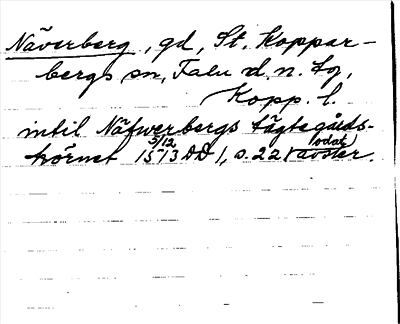 Näverberg, gd, St. Koppar-
bergs sn, Falu d.n. tg,
Kopp. l.
intil Näfwerbergs tägtegårds-
hörnet 5/12 1573 DD 1, s. 22, odat avskr.